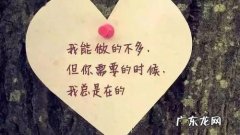 我能做的不多，
但你需要的时候，
我总是在的
广东龙网